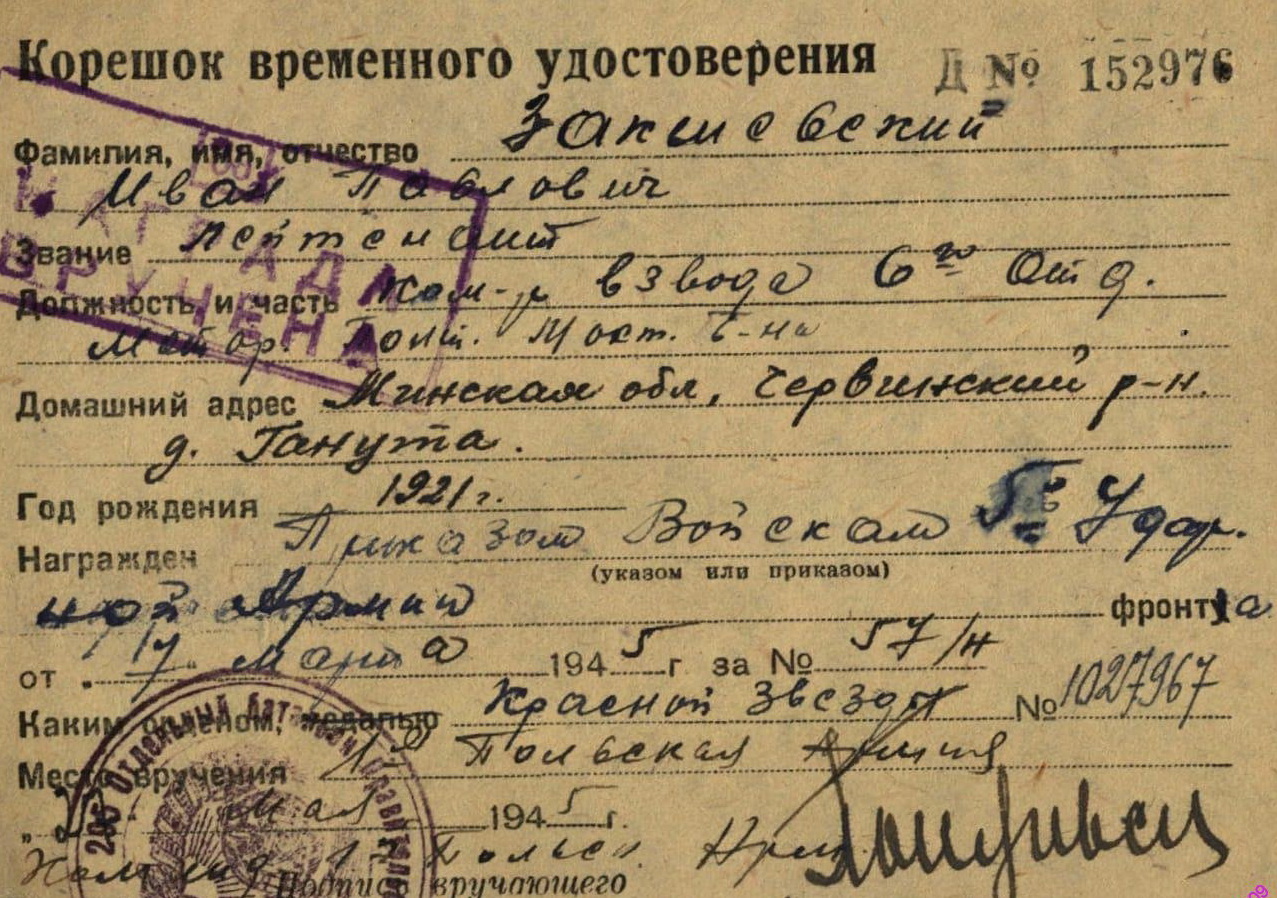 Корешок временного удостоверения Д № 152976
Фамилия, имя, отчество
Иван Павлович
Звание лейтенант
Должность и часть Ком-р взвода 6го Отд.
Мотор. Понт. Мост. б-на
Домашний адрес Минская обл, Червинский р-н.
д. Ганута.
Год рождения 1921 г.
Награжден Приказом Войскам 5й Удар-
(указом или приказом)
ной Армии фронта
от „17“ марта 1945 г за № 57/н
Каким орденом, медалью Красной Звезды № 1027967
Место вручения 1я Польская Армия
„ “ мая 1945 г.
Польск.
Подпись вручающего
НАГРАДА
ВРУЧЕНА
203 Отдельный батальон